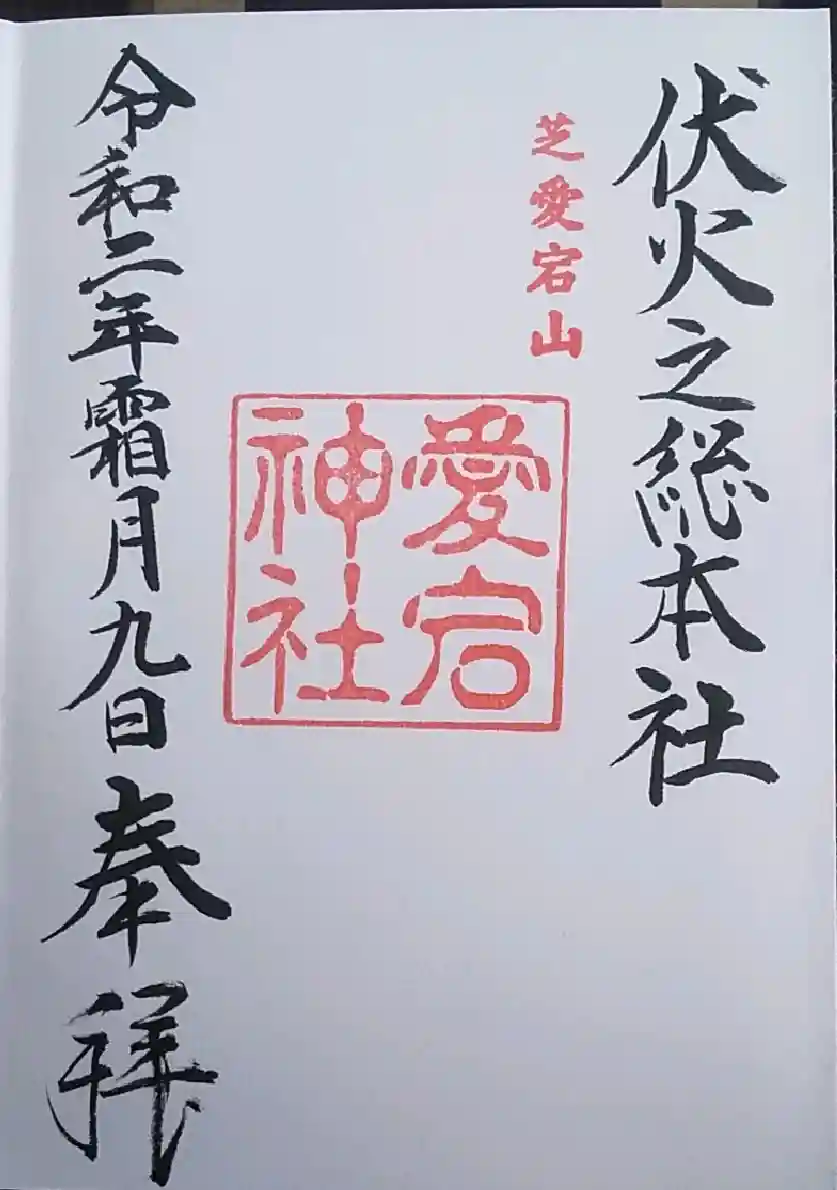 伏火之総本社
芝愛宕山
愛宕
神社
令和二年霜月九日奉拝